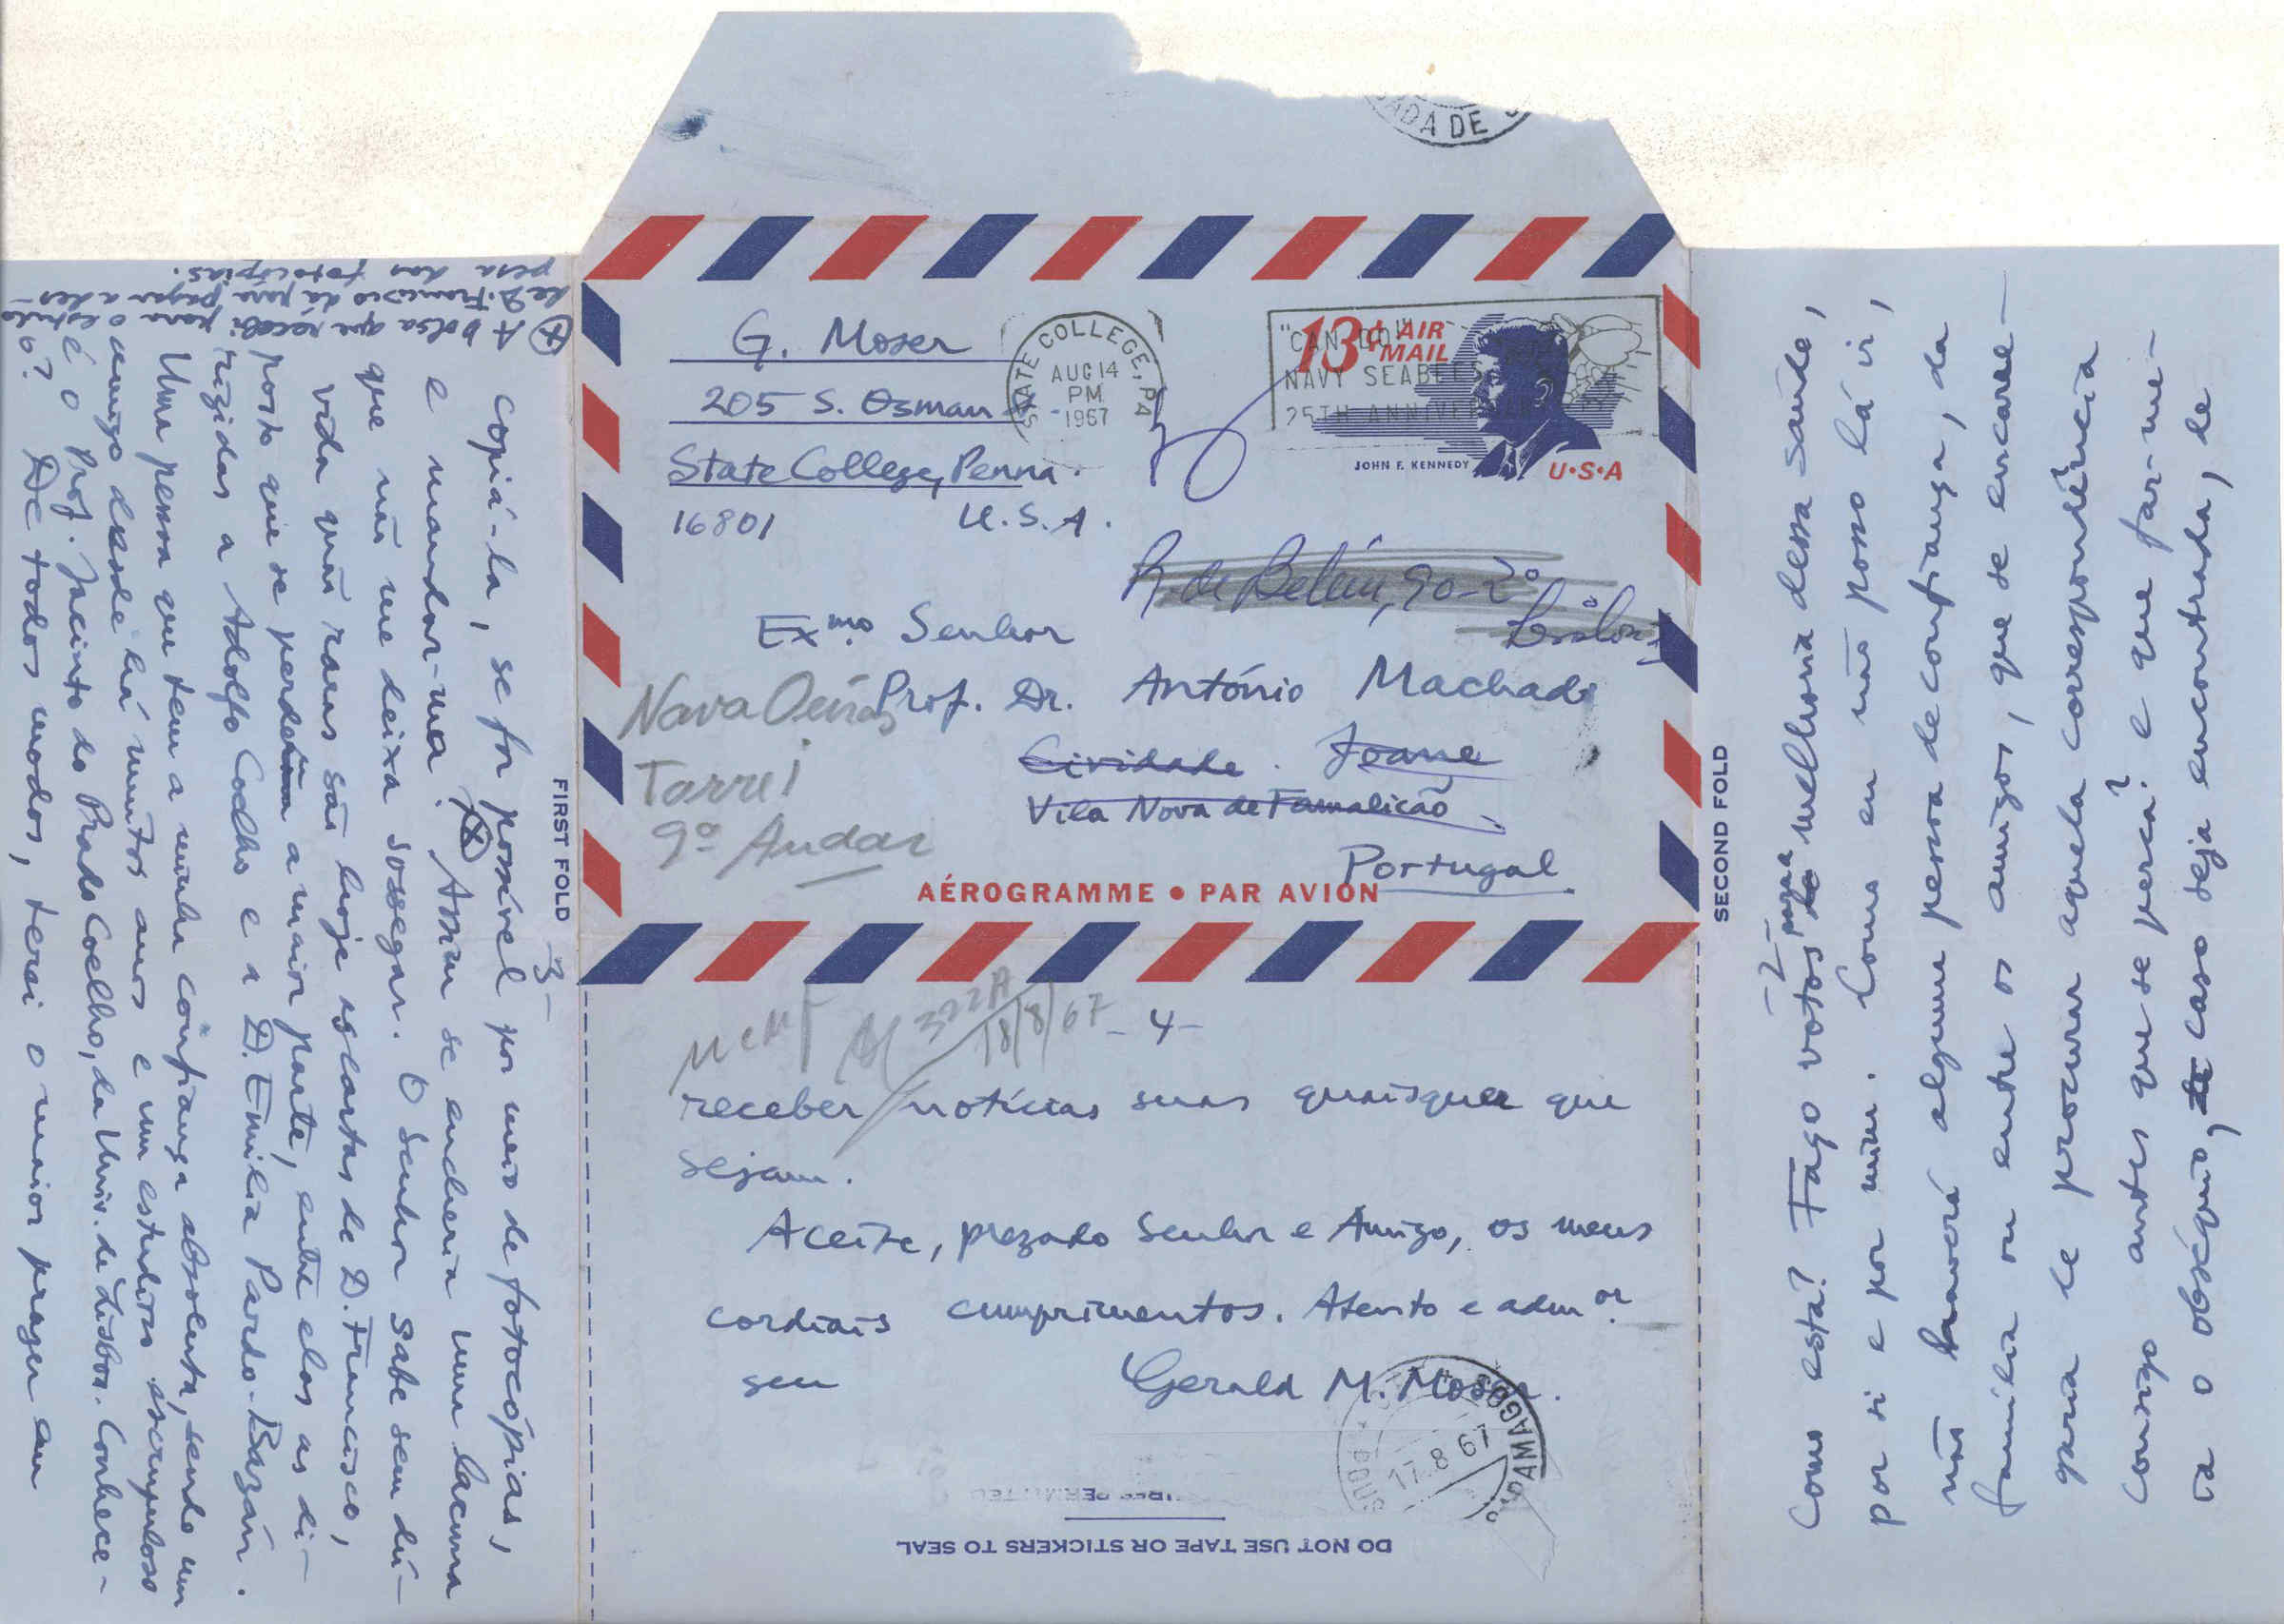 ADA DE
G. Moser
205 S. Osman
State College, Penna.
16801 U.S.A.
STATE COLLEGE, PA
AUG 14
PM
1967
"CAN DO"
NAVY SEABEES
25TH ANNIVERSARY
13¢ AIR
MAIL
JOHN F. KENNEDY
U·S·A
R. de Belém, 90-2º
Lisboa
Exmo. Senhor
Prof. Dr. António Machado
Cividade. Joane
Vila Nova de Famalicão
Portugal.
Nova Oeiras
Torre i
9º Andar
AÉROGRAMME • PAR AVION
FIRST FOLD
SECOND FOLD
-2-
Como está? Faço votos pela melhoria dessa saúde,
por si e por mim. Como eu não posso lá ir,
não haverá alguma pessoa de confiança, da
família ou entre os amigos, que se encarre-
garia de procurar aquela correspondência
consigo antes que se perca? e que far-me-
ia o obséquio, de caso seja encontrada, de
-3-
copiá-la, se for possível por meio de fotocópias,
e mandar-ma? ⊗ Assim se encheria uma lacuna
que não me deixa sossegar. O Senhor sabe sem dú-
vida quão raras são hoje as cartas de D. Francisco,
posto que se perderam a maior parte, entre elas as di-
rigidas a Adolfo Coelho e a D. Emília Pardo-Bazán.
Uma pessoa que tem a minha confiança absoluta, sendo um
amigo desde há muitos anos e um estudioso escrupuloso
é o Prof. Jacinto do Prado Coelho, da Univ. de Lisboa. Conhece-
o? De todos modos, terei o maior prazer em
⊗ A bolsa que recebi para o estudo
de D. Francisco dá para pagar a des-
pesa das fotocópias.
322A
18/8/67
-4-
receber notícias suas quaisquer que
sejam.
Aceite, prezado Senhor e Amigo, os meus
cordiais cumprimentos. Atento e admor.
seu Gerald M. Moser.
17.8.67
DO NOT USE TAPE OR STICKERS TO SEAL